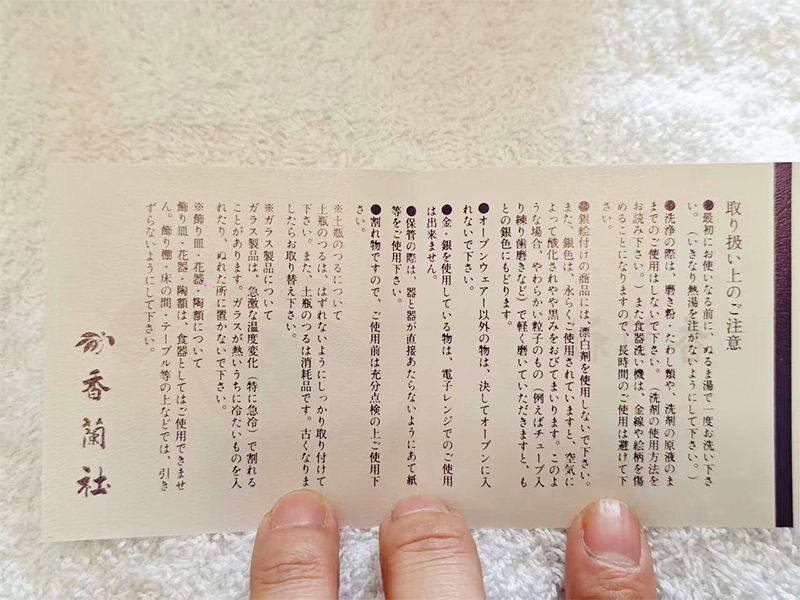 取り扱い上のご注意
●最初にお使いになる前に、ぬるま湯で一度お洗い下さ
い。（いきなり熱湯を注がないようにして下さい。）
●洗浄の際は、磨き粉・たわし類や、洗剤の原液のま
までのご使用はしないで下さい。（洗剤の使用方法を
お読み下さい。）また食器洗い機は、金線や絵柄を傷
めることになりますので、長時間のご使用は避けて下
さい。
●銀絵付けの商品には、漂白剤を使用しないで下さい。
また、銀色は、永らくご使用されていますと、空気に
よって酸化されやや黒みをおびてまいります。このよ
うな場合、やわらかい粒子のもの（例えばチューブ入
り練り歯磨きなど）で軽く磨いていただきますと、も
との銀色にもどります。
●オーブンウェアー以外の物は、決してオーブンに入
れないで下さい。
●金・銀を使用している物は、電子レンジでのご使用
は出来ません。
●保管の際は、器と器が直接あたらないようにあて紙
等をご使用下さい。
●割れ物ですので、ご使用前は充分点検の上ご使用下
さい。
※土瓶のつるについて
土瓶のつるは、はずれないようにしっかり取り付けて
下さい。また、土瓶のつるは消耗品です。古くなりま
したらお取り替え下さい。
※ガラス製品について
ガラス製品は、急激な温度変化（特に急冷）で割れる
ことがあります。ガラスが熱いうちに冷たいものを入
れたり、ぬれた所に置かないで下さい。
※飾り皿・花器・陶額について
飾り皿・花器・陶額は、食器としてはご使用できませ
ん。飾り棚・床の間・テーブル等の上などでは、引き
ずらないようにして下さい。
香蘭社